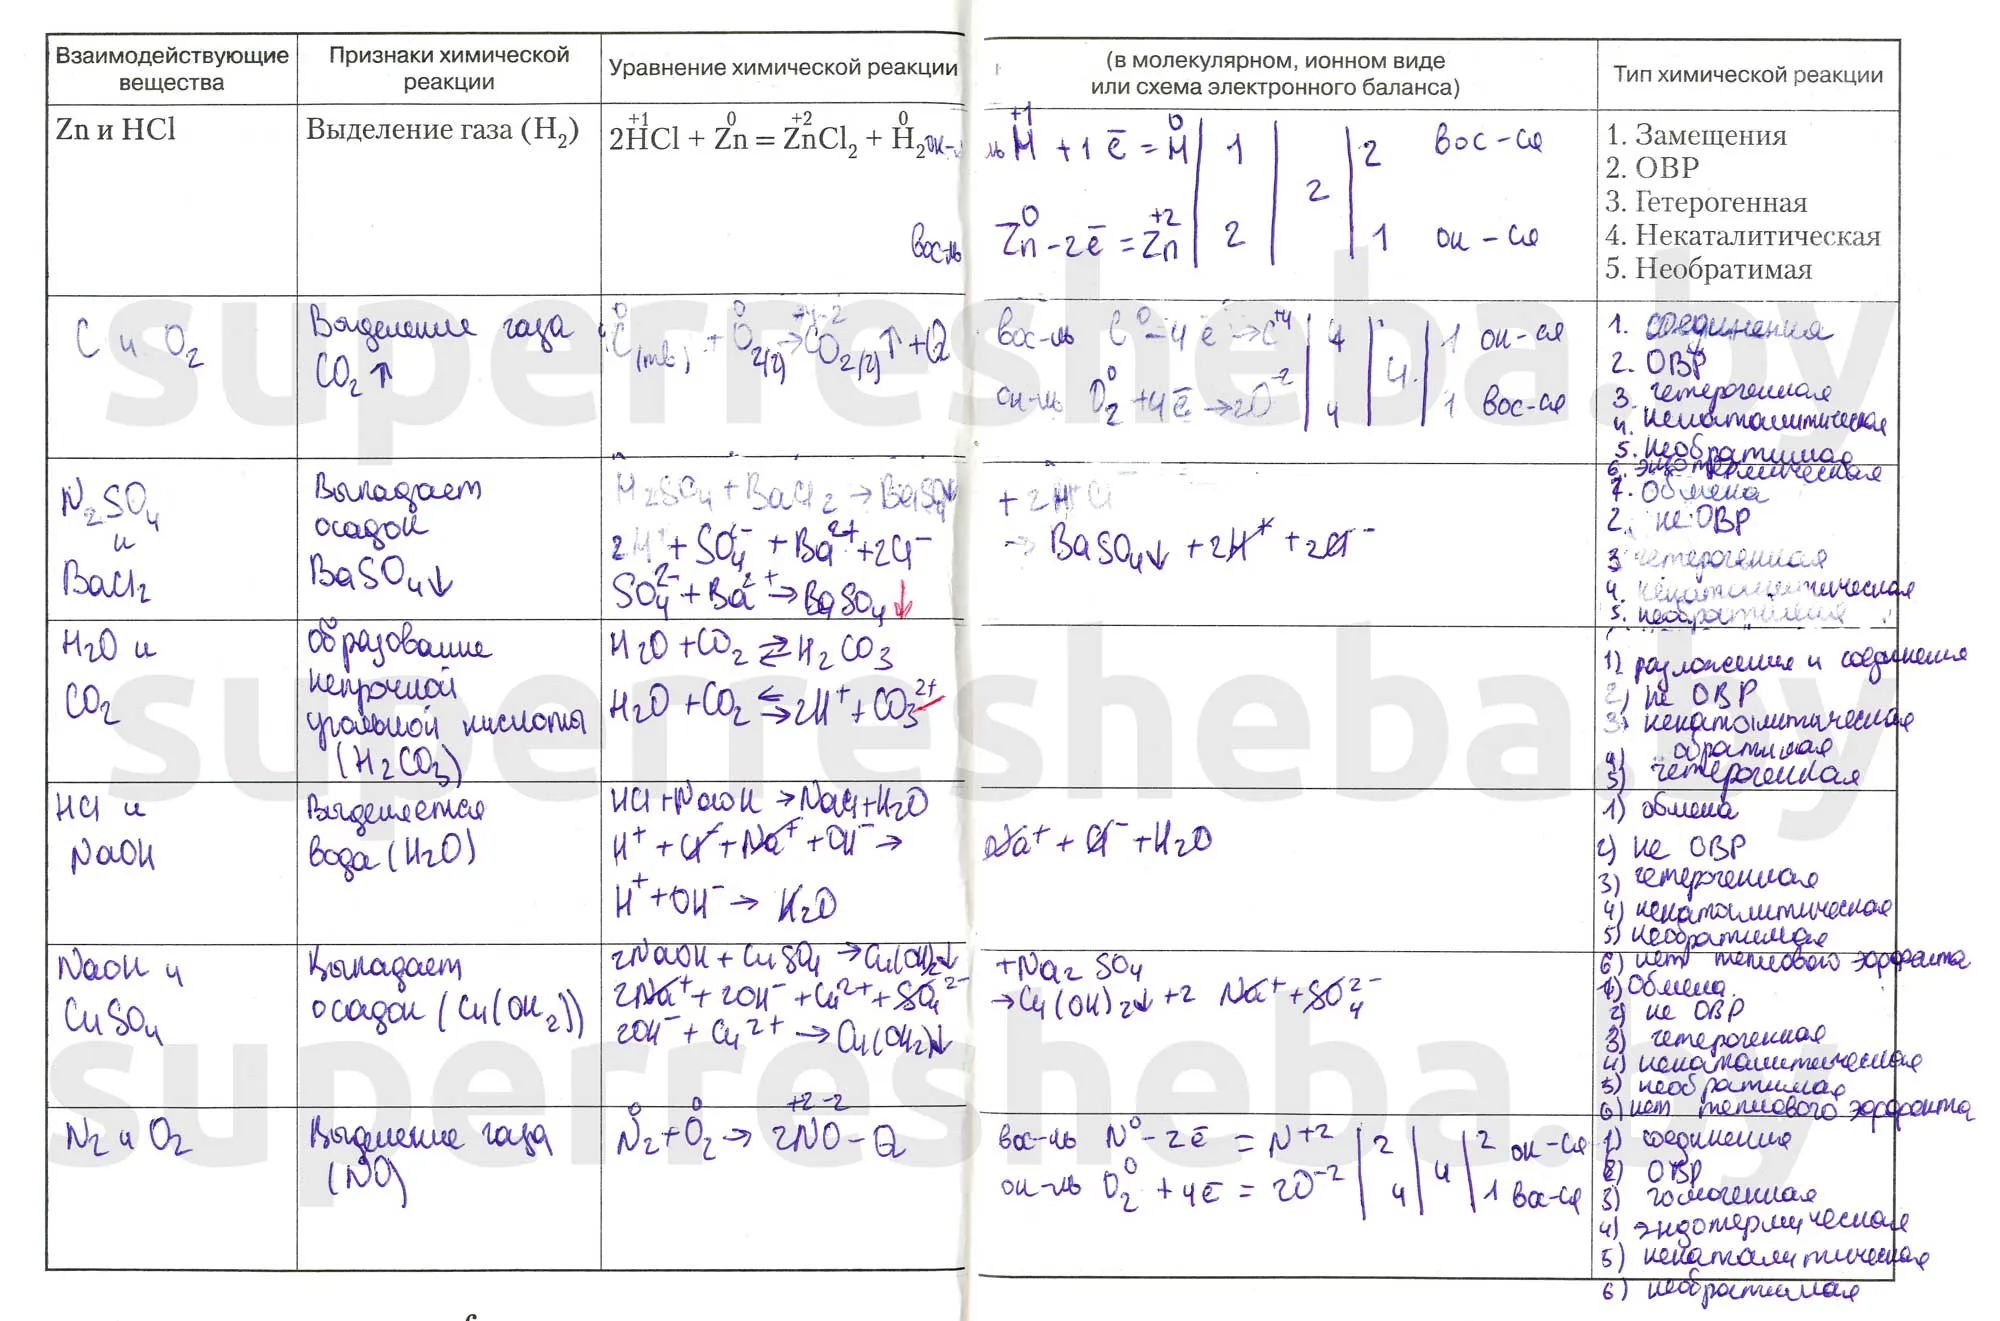 Взаимодействующие вещества
Признаки химической реакции
Уравнение химической реакции
(в молекулярном, ионном виде
или схема электронного баланса)
Тип химической реакции
Zn и HCl
Выделение газа (H₂)
+1 0 +2 0
2HCl + Zn = ZnCl₂ + H₂
ок-ль H⁺¹ + 1ē = H⁰ | 1 | 2 | 2 вос-ся
вос-ль Zn⁰ - 2ē = Zn⁺² | 2 | | 1 ок-ся
1. Замещения
2. ОВР
3. Гетерогенная
4. Некаталитическая
5. Необратимая
C и O₂
Выделение газа
CO₂↑
0 0 +4 -2
C(тв) + O₂(г) → CO₂(г)↑ + Q
вос-ль C⁰ - 4ē → C⁺⁴ | 4 | 4 | 1 ок-ся
ок-ль O₂⁰ + 4ē → 2O⁻² | 4 | | 1 вос-ся
1. соединения
2. ОВР
3. гетерогенная
4. некаталитическая
5. необратимая
N₂SO₄
и
BaCl₂
Выпадает
осадок
BaSO₄↓
H₂SO₄ + BaCl₂ → BaSO₄↓
+ 2HCl
2H⁺ + SO₄²⁻ + Ba²⁺ + 2Cl⁻
→ BaSO₄↓ + 2H⁺ + 2Cl⁻
SO₄²⁻ + Ba²⁺ → BaSO₄↓
Обмена
2. не ОВР
3 гетерогенная
4. некаталитическая
5.
H₂O и
CO₂
образование
непрочной
угольной кислоты
(H₂CO₃)
H₂O + CO₂ ⇄ H₂CO₃
H₂O + CO₂ ⇄ 2H⁺ + CO₃²⁺
1) разложения и соединения
2) не ОВР
3) некаталитическая
4) обратимая
5) гетерогенная
HCl и
NaOH
Выделяется
вода (H₂O)
HCl + NaOH → NaCl + H₂O
H⁺ + Cl⁻ + Na⁺ + OH⁻ →
Na⁺ + Cl⁻ + H₂O
H⁺ + OH⁻ → H₂O
1) обмена
2) не ОВР
3) гетерогенная
4) некаталитическая
5) необратимая
6) нет теплового эффекта
NaOH и
CuSO₄
Выпадает
осадок (Cu(OH₂))
2NaOH + CuSO₄ → Cu(OH)₂↓
+ Na₂SO₄
2Na⁺ + 2OH⁻ + Cu²⁺ + SO₄²⁻
→ Cu(OH)₂↓ + 2Na⁺ + SO₄²⁻
2OH⁻ + Cu²⁺ → Cu(OH₂)↓
1) Обмена
2) не ОВР
3) гетерогенная
4) некаталитическая
5) необратимая
6) нет теплового эффекта
N₂ и O₂
Выделение газа
(NO)
0 0 +2 -2
N₂ + O₂ → 2NO - Q
вос-ль N⁰ - 2ē = N⁺² | 2 | 4 | 2 ок-ся
ок-ль O₂⁰ + 4ē = 2O⁻² | 4 | | 1 вос-ся
1) соединения
2) ОВР
3) гомогенная
4) эндотермическая
5) некаталитическая
6) необратимая
superresheba.by
superresheba.by
superresheba.by